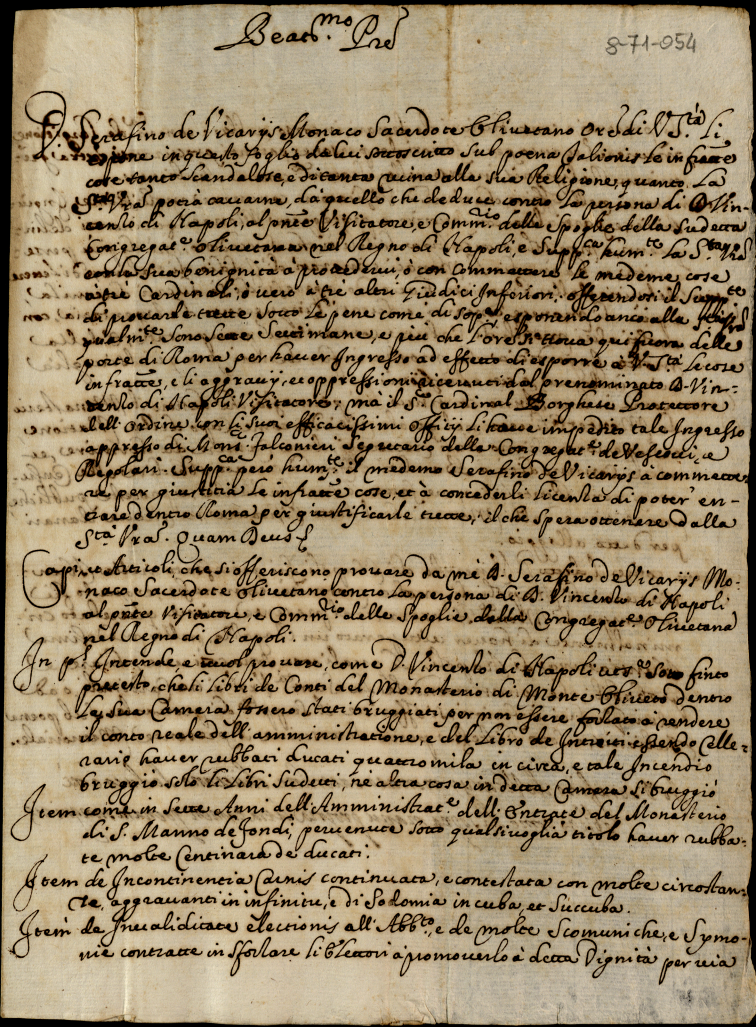 Beat.mo Pre
8-71-054
D. Serafino de Vicarijs Monaco Sacerdote Olivetano Ore di V. S.tà Li
espone in questo foglio da lui sottoscritto sub poena Talionis le infratte
cose tanto scandalose, e di tanta ruina alla sua Religione, quanto La
S.tà Vra potrà cavarne, da quello che deduce contro La persona di D. Vin-
centio di Napoli, al pnte Visitatore, e Comm.rio delle Spoglie della Sudetta
Congregat.e Olivetana nel Regno di Napoli, e Supp.ca hum.te La S.tà Vra
con la sua benignità à provedervi, ò con commettere le medeme cose
à trè Cardinali, ò vero à trè altri Giudici Inferiori, offerendosi il Supp.te
di provarle tutte sotto le pene come di sop.a esponendo anco alla
qualm.te sono sette settimane, e più che l'ore si trova qui fuora delle
porte di Roma per haver Ingresso ad effetto di esporre à V. S.tà le cose
infratte, e li aggravij, et oppressioni ricevuti dal prenominato D. Vin-
centio di Napoli Visitatore; mà il S.r Cardinal Borghese Protettore
dell'Ordine con li suoi efficacissimi offitij li have impedito tale Ingresso
appresso di Mons.r Falconieri Segretario delle Congregat.e de Vescovi, e
Regolari. Supp.ca però hum.te il medemo Serafino de Vicarijs à commette-
re per giustitia le infratte cose, et à concederli licentia di poter en-
trare dentro Roma per giustificarle tutte, il che spera ottenere dalla
S.tà Vra. Quam Deus
Capi, et Articoli, che si offeriscono provare da mè D. Serafino de Vicarijs Mo-
naco Sacerdote Olivetano contro la persona di D. Vincentio di Napoli
al pnte Visitatore, e Comm.rio delle Spoglie della Congregat.e Olivetana
nel Regno di Napoli.
In p.s Intende, e vuol provare, come D. Vincentio di Napoli sotto finto
pretesto, che li Libri de Conti del Monasterio di Monte Oliveto dentro
la sua Camera fossero stati bruggiati per non essere forzato à rendere
il conto reale dell'amministratione, e del Libro de Introiti essendo Celle-
rario haver rubbati ducati quattro mila in circa, e tale Incendio
bruggiò solo li Libri sudetti, nè altra cosa in detta Camera si bruggiò
Item come in sette Anni dell'Amministrat.e dell'Entrate del Monasterio
di S. Manno de Fondi, pervenute sotto qualsivoglia titolo haver rubba-
te molte Centinara de ducati.
Item de Incontinentia Carnis continuata, e contestata con molte circostan-
tie, aggravanti in infinitu, e di Sodomia incuba, et Succuba.
Item de Invaliditate electionis all'Abb.to, e de molte Scomuniche, e Symo-
nie contratte in sforzare li Elettori à promoverlo à detta Dignità per via